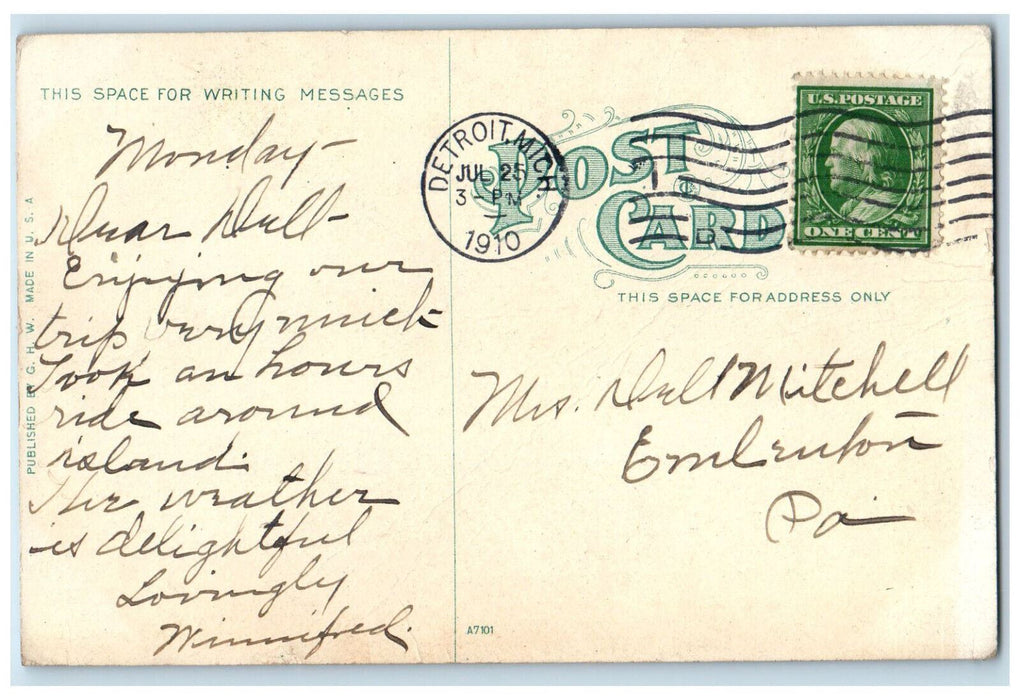 THIS SPACE FOR WRITING MESSAGES
Monday-
Dear Dell-
Enjoying our
trip very much-
Took an hours
ride around
island.
The weather
is delightful
Lovingly
Winnifred.
PUBLISHED BY G. H. W. MADE IN U. S. A
DETROIT, MICH.
JUL 25
3 - PM
1910
POST
CARD
U.S. POSTAGE
ONE CENT
THIS SPACE FOR ADDRESS ONLY
Mrs. Dell Mitchell
Emlenton
Pa
A7101